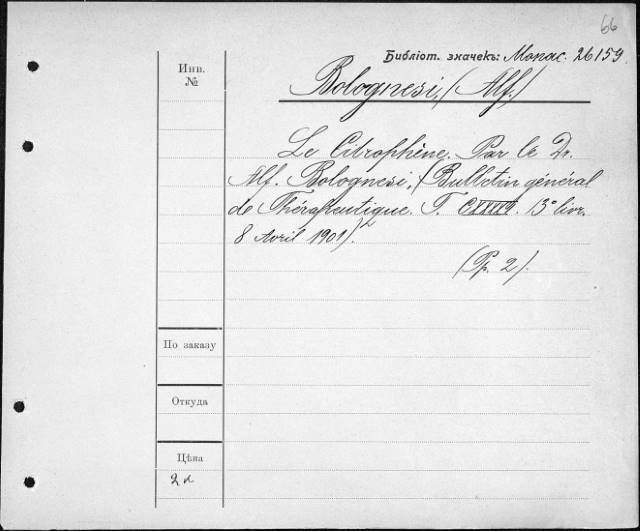 66
Библіот. значекъ: Монас. 26159.
Инв.
№
Bolognesi, (Alf.)
Le Citrophène. Par le Dr.
Alf. Bolognesi, (Bulletin général
de Thérapeutique. T. 13e livr.
8 Avril 1901).
(Pp. 2).
По заказу
Откуда
Цѣна
2